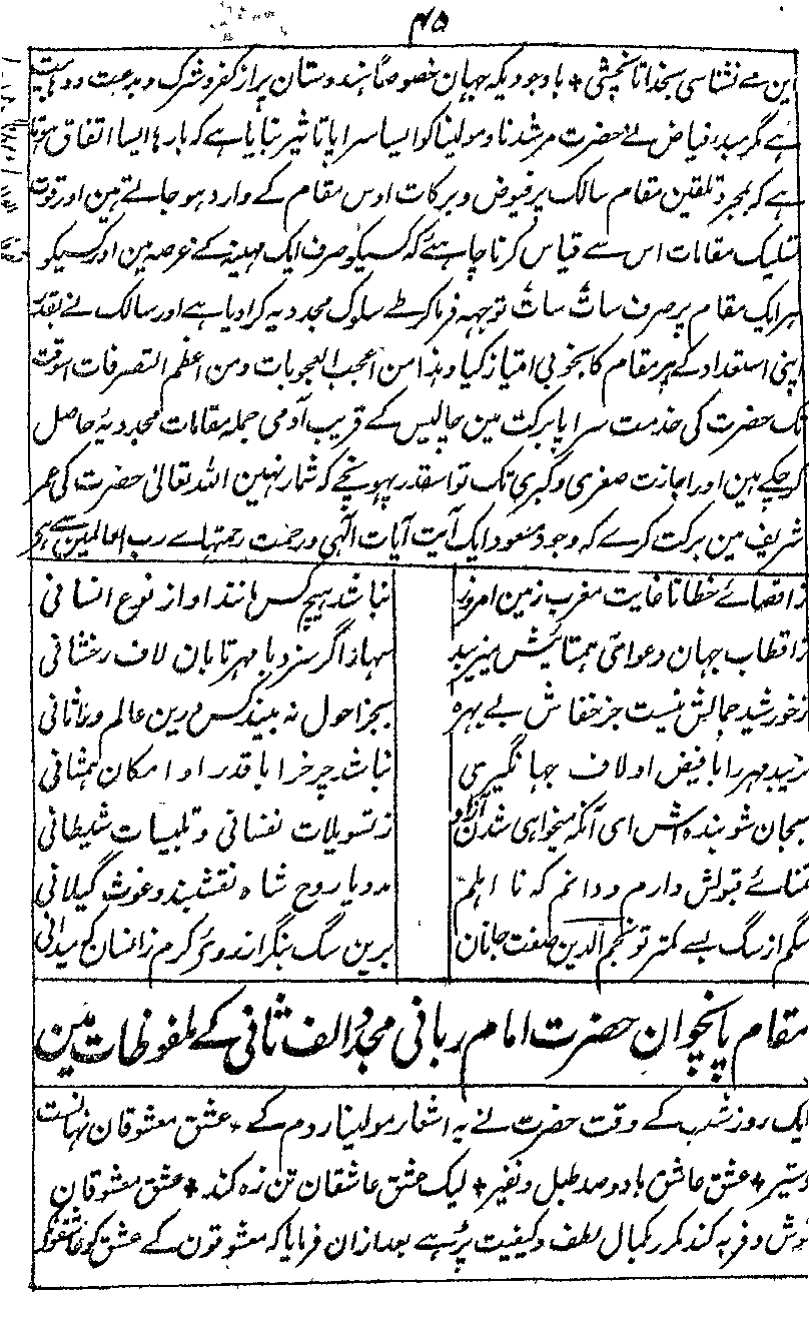 ۴۵
این مے نشناسی بخدا تا نچشی ٭ باوجودیکہ جہان خصوصاً ہندوستان پر از کفر و شرک و بدعت و
ہے مگر مبدء فیاض نے حضرت مرشدنا و مولینا کو ایسا سراپا تاثیر بنایا ہے کہ بارہا ایسا اتفاق ہوتا
ہے کہ بمجرد تلقین مقام سالک پر فیوض و برکات اوس مقام کے وارد ہو جاتے ہین اور قوت
تسلیک مقامات اس سے قیاس کرنا چاہئے کہ کسیکو صرف ایک مہینہ کے عرصہ مین اور کسیکو
ہر ایک مقام پر صرف سات سات توجہہ فرما کر طے سلوک مجددیہ کرا دیا ہے اور سالک نے بقدر
اپنی استعداد کے ہر مقام کا بخوبی امتیاز کیا وہذا من اعجب العجوبات ومن اعظم التصرفات اسوقت
تک حضرت کی خدمت سراپا برکت مین چالیس کے قریب آدمی جملہ مقامات مجددیہ حاصل
کر چکے ہین اور اجازت صغری و کبری تک تو اسقدر پہونچے کہ شمار نہین اللہ تعالی حضرت کی عمر
شریف مین برکت کرے کہ وجود مسعود ایک آیت آیات الٰہی و رحمت رحمتہاے رب العالمین سے ہے
ز اقصائے خطا تا غایت مغرب زمین امروز نباشد ہیچ کس مانند او از نوع انسانی
ز اقطاب جہان دعوائے ہمتائیش میزیبد سہا را گر سزد با مہر تابان لاف رخشانی
ز خورشید جمالش نیست جز خفاش بے بہرہ بجز احول نہ بیند کس درین عالم ورا ثانی
نزیبد مہر را با فیض او لاف جہانگیری نباشد چرخ را با قدر او امکان ہمشانی
بجان شو بندہ اش ای آنکہ میخواہی شدن آزاد ز تسویلات نفسانی و تلبیسات شیطانی
تمنائے قبولش دارم و دانم کہ نا اہلم مدد یا روح شاہ نقشبند و غوث گیلانی
سگم از سگ بسے کمتر تو نجم الدین صفت جانان برین سگ بنگر از روئے کرم ز انسان کہ میدانی
مقام پانچوان حضرت امام ربانی مجدد الف ثانی کے ملفوظات مین
ایک روز شب کے وقت حضرت نے یہ اشعار مولینا روم کے ٭ عشق معشوقان نہانست
وستیر ٭ عشق عاشق با دو صد طبل و نفیر ٭ لیک عشق عاشقان تن زہ کند ٭ عشق معشوقان
خوش و فربہ کند مکرر بکمال لطف و کیفیت پڑہے بعد ازان فرمایا کہ معشوقون کے عشق کو